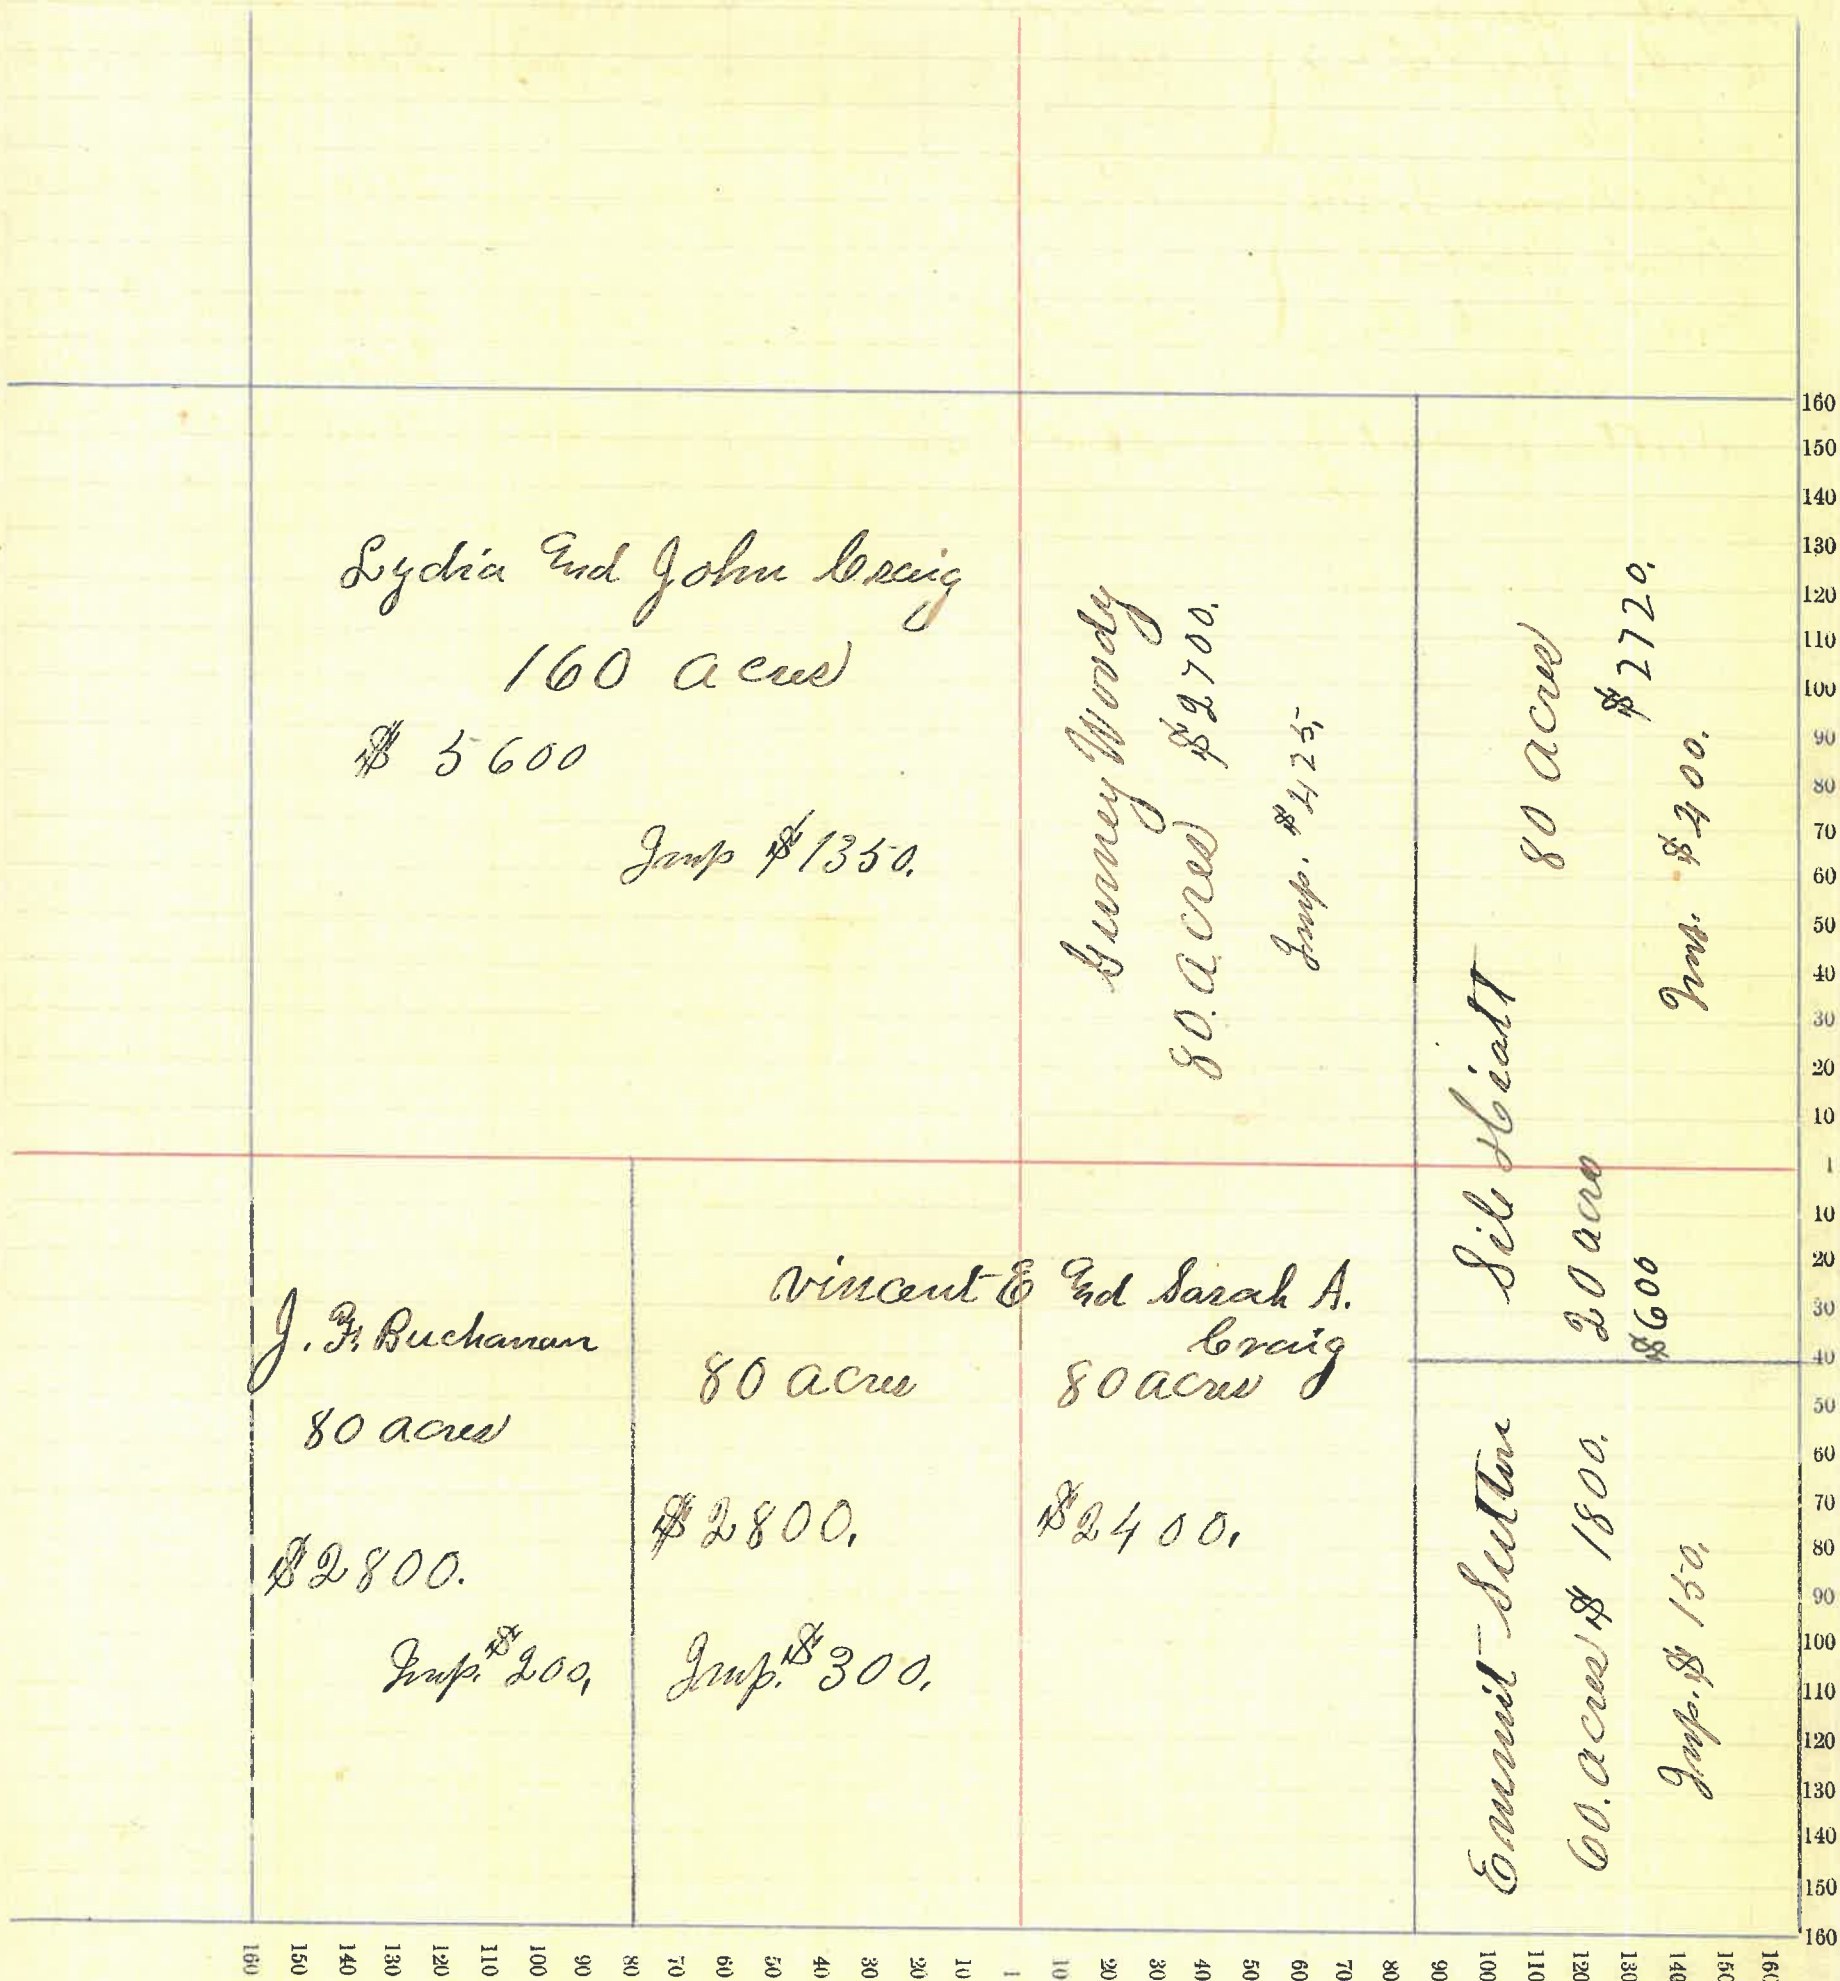 Lydia End John Craig
160 acres
$ 5600
Imp $1350.
Gurney Woody
80. acres $2700.
Imp. $425.
Sile Hiatt
80 acres
$2720.
Imp. $400.
20 acres
$600
J. F. Buchanan
80 acres
$2800.
Imp. $200.
Vincent E End Sarah A.
Craig
80 acres
80 acres
$2800.
$2400.
Imp. $300.
Emmit Sutton
60. acres $ 1800.
Imp. $ 150.
160
150
140
130
120
110
100
90
80
70
60
50
40
30
20
10
1
10
20
30
40
50
60
70
80
90
100
110
120
130
140
150
160
160 150 140 130 120 110 100 90 80 70 60 50 40 30 20 10 1 10 20 30 40 50 60 70 80 90 100 110 120 130 140 150 160